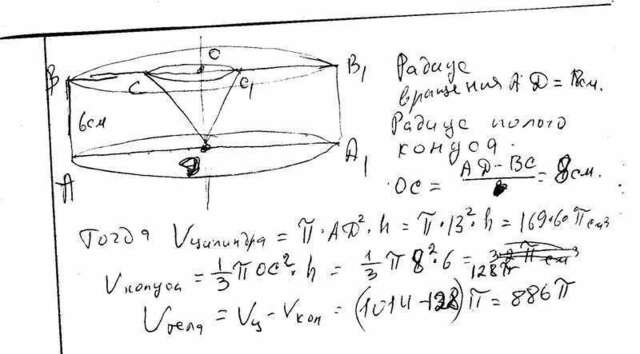 O
B
C
C₁
B₁
6см
A
D
A₁
Радиус
вращения АД = 13см.
Радиус полого
конуса.
ОС = АД-ВС = 8см.
Тогда Vцилиндра = π·АД²·h = π·13²·h = 169·6π см³
Vконуса = 1/3 πОС²·h = 1/3 π 8²·6 = 128π см³
Vтела = Vц - Vкон = (1014-128)π = 886π